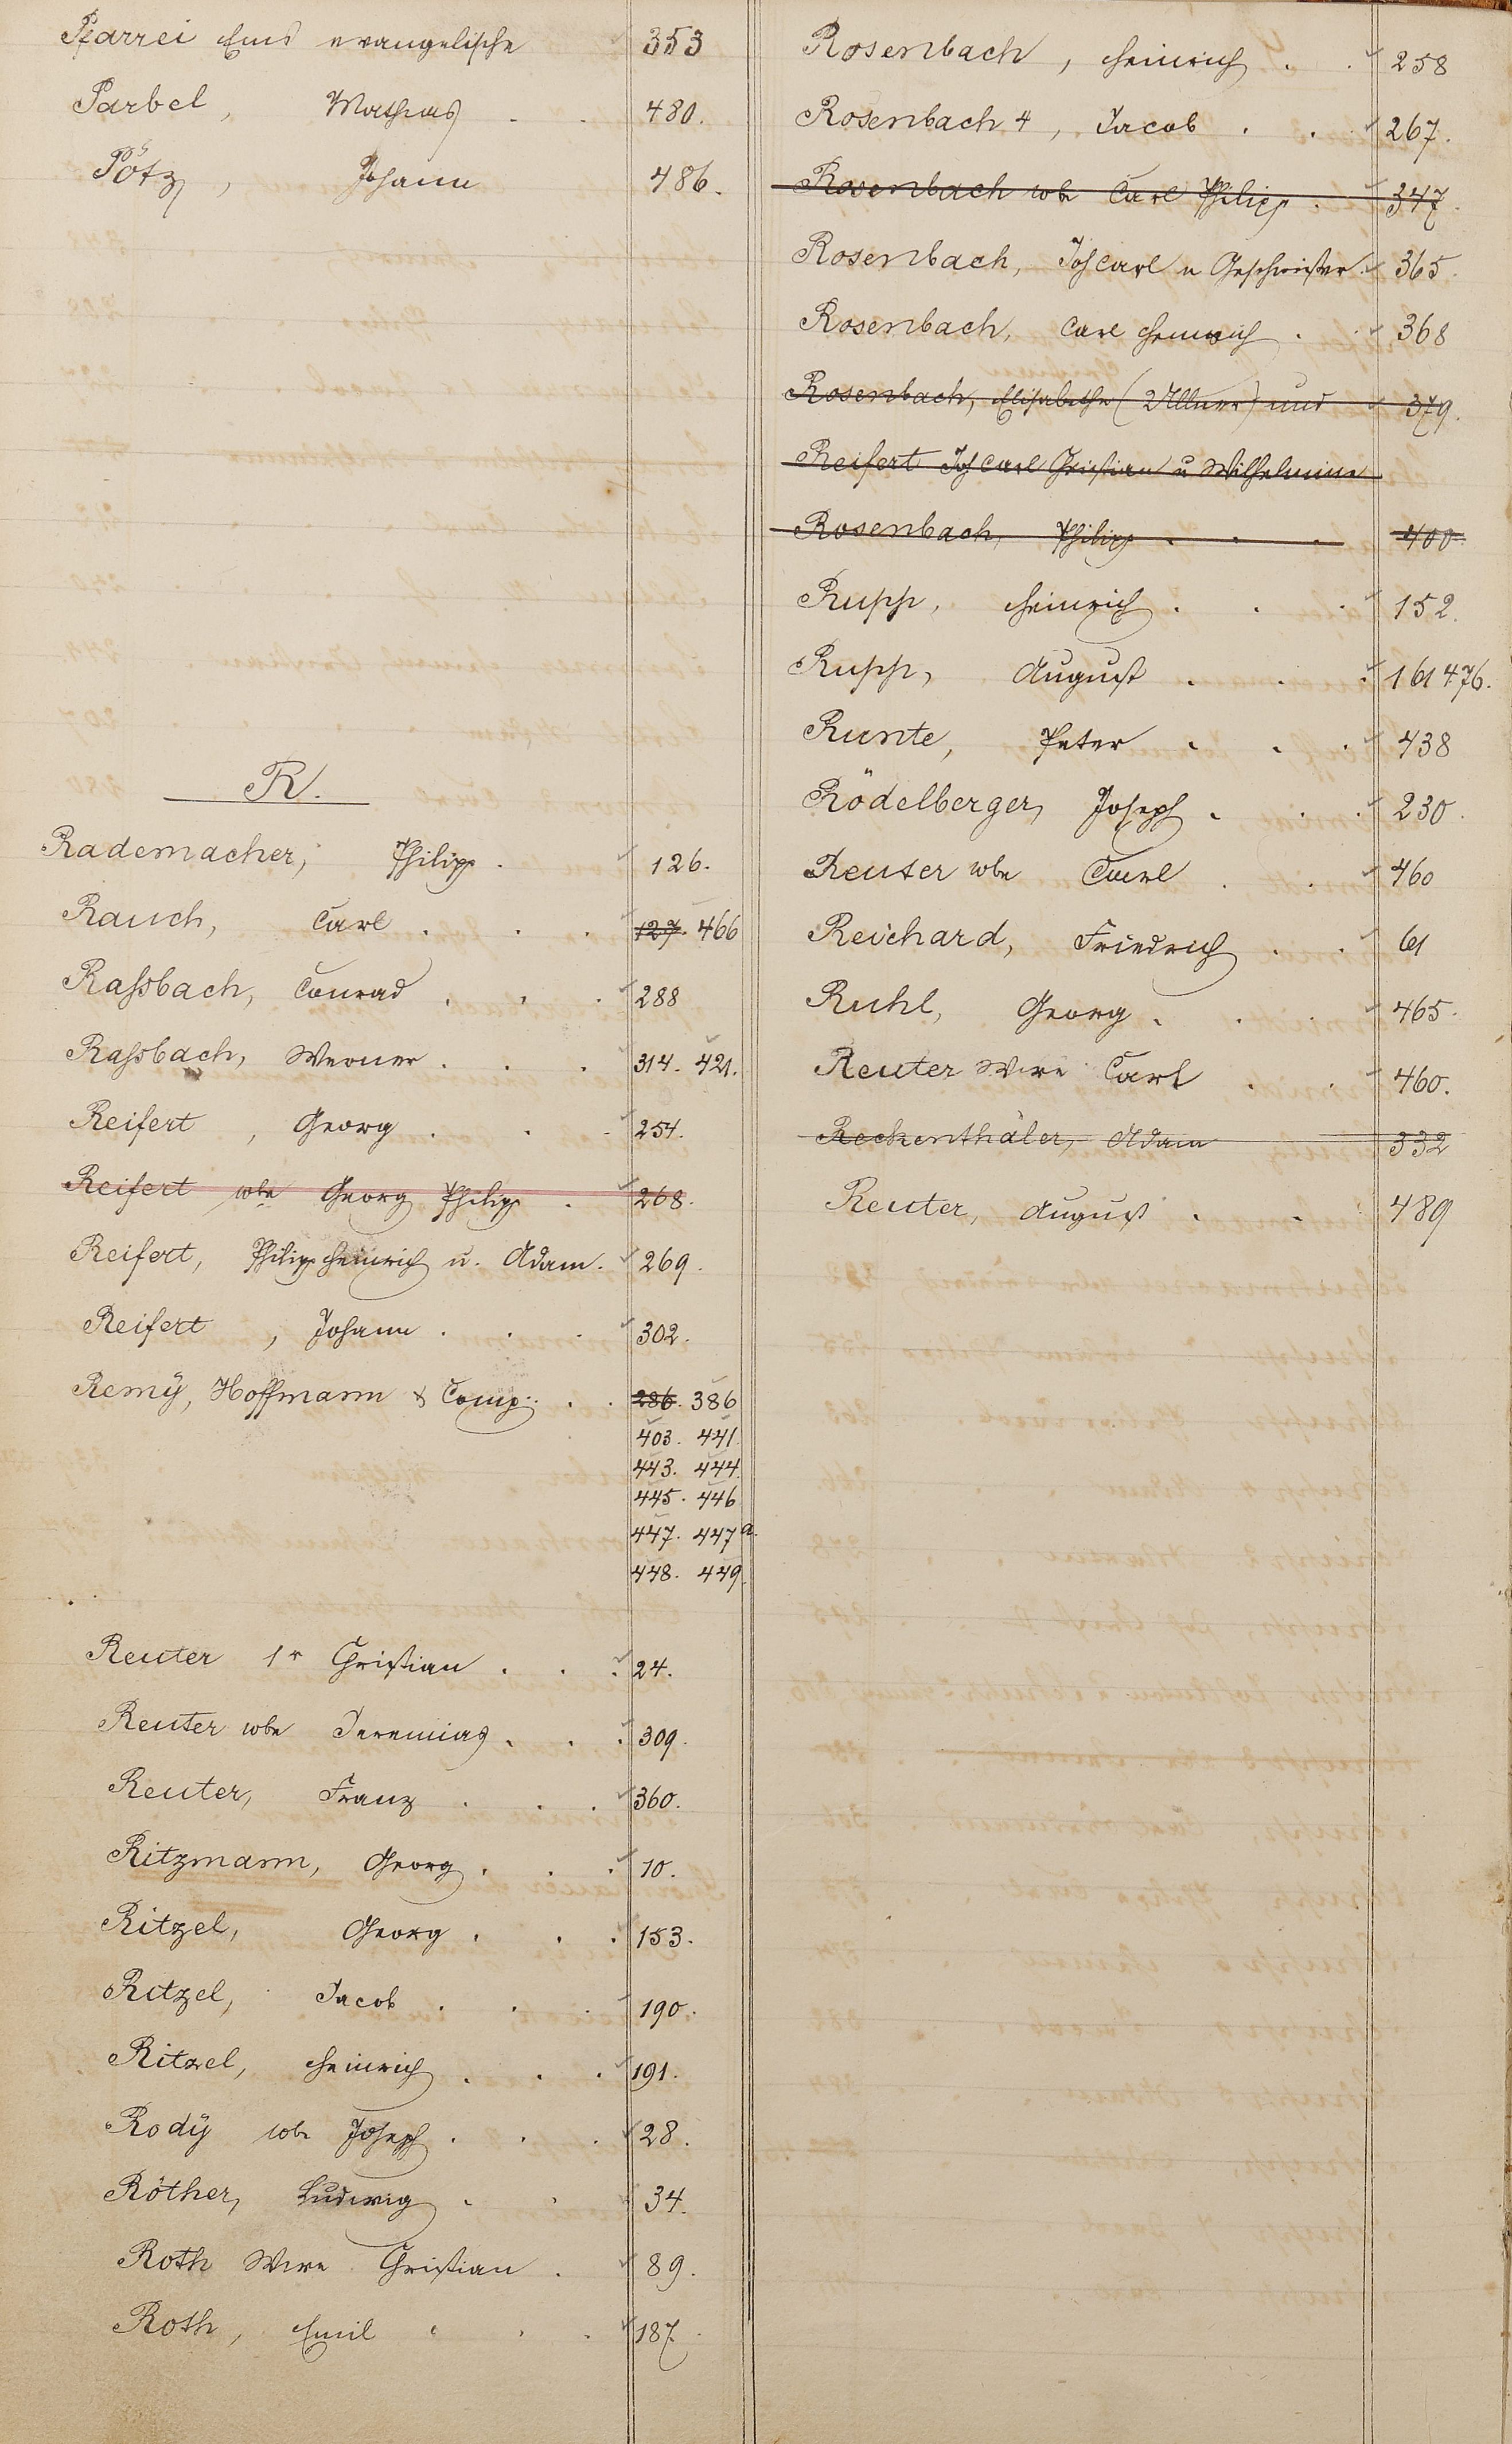 Pfarrei Ems evangelische 353
Parbel, Mathias . . 480.
Pötz, Johann 486.
R.
Rademacher, Philipp . 126.
Rauch, Carl . . . 127. 466
Raßbach, Conrad . . . 288
Raßbach, Werner . . . 314. 421.
Reifert, Georg . . . 254.
Reifert wbe Georg Philipp . 268.
Reifert, Philipp Heinrich u. Adam. 269.
Reifert, Johann . . . 302.
Remÿ, Hoffmann & Comp: . . 286. 386
403. 441.
443. 444.
445. 446
447. 447a.
448. 449.
Reuter 1r Christian . . . 24.
Reuter wbe Jeremias . . . 309.
Reuter, Franz . . . 360.
Ritzmann, Georg . . . 10.
Ritzel, Georg . . . 153.
Ritzel, Jacob . . . 190.
Ritzel, Heinrich . . . 191.
Rodÿ wbe Joseph . . . 28.
Röther, Ludwig . . 34.
Roth Wwe Christian . 89.
Roth, Emil . . . 187.
Rosenbach, Heinrich . . 258
Rosenbach 4, Jacob . . . 267.
Rosenbach wbe Carl Philipp . 347.
Rosenbach, Joh Carl u Geschwister. 365.
Rosenbach, Carl Heinrich . . 368
Rosenbach, Elisabethe (Ullner) und 379.
Reifert Joh Carl Christian u Wilhelmine
Rosenbach, Philipp . . . 400.
Rupp, Heinrich . . . 152.
Rupp, August . . . 161 476.
Runte, Peter . . . 438
Rödelberger, Joseph . . . 230.
Reuter wbe Carl . . 460
Reichard, Friedrich . . 61
Ruhl, Georg . . . 465.
Reuter Wwe Carl . . 460.
Reckenthäler, Adam 332
Reuter, August . . 489